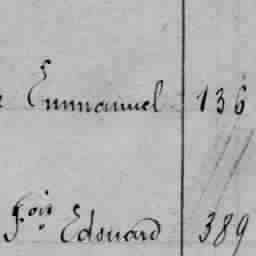 Emmanuel 136
Fois Edouard 389